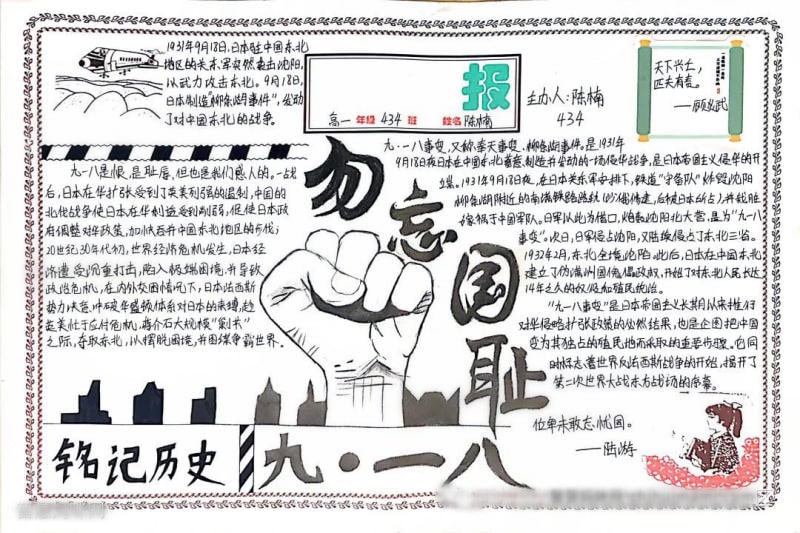 1931年9月18日,日本驻中国东北
地区的关东军突然袭击沈阳,
以武力攻击东北。9月18日,
日本制造"柳条湖事件",发动
了对中国东北的战争。
报
高一 年级 434 班 姓名 陈楠
主办人:陈楠
434
天下兴亡,
匹夫有责。
——顾炎武
勿忘国耻
九一八是恨,是耻辱,但也是我们
后,日本在华扩张受到了英美列强的遏制,中国的
北伐战争使日本在华
府得调整对华政策,加快吞并中国东北地区的步伐;
20世纪30年代初,世界经济危机发生,日本经
济遭受沉重打击,陷入极端困境,并导致
政治危机,在内外交困情况下,日本法西斯
势力
英美忙于应付危机,蒋介石大规模"剿共"
之际,夺取东北,以摆脱困境,并图谋争霸世界。
九·一八事变,又称奉天事变、柳条湖事件。是1931年
9月18日夜日本在中国东北蓄意制造并发动的一场侵华战争,是日本帝国主义侵华的开
端。1931年9月18日夜,在日本关东军安排下,铁道"守备队"炸毁沈阳
柳条湖附近的南满铁路路轨(沙俄修建,后被日本所占),并栽赃
嫁祸于中国军队。日军以此为借口,炮轰沈阳北大营,是为"九一八
事变"。次日,日军侵占沈阳,又陆续侵占了东北三省。
1932年2月,东北全境沦陷。此后,日本在中国东北
建立了伪满洲国傀儡政权,开始了对东北人民长达
14年之久的奴役和殖民统治。
"九一八事变"是日本帝国主义长期以来推行
对华侵略扩张政策的必然结果,也是企图把中国
变为其独占的殖民地而采取的重要步骤。它同
时标志着世界反法西斯战争的开始,揭开了
第二次世界大战东方战场的序幕。
位卑未敢忘忧国。
——陆游
铭记历史
九·一八